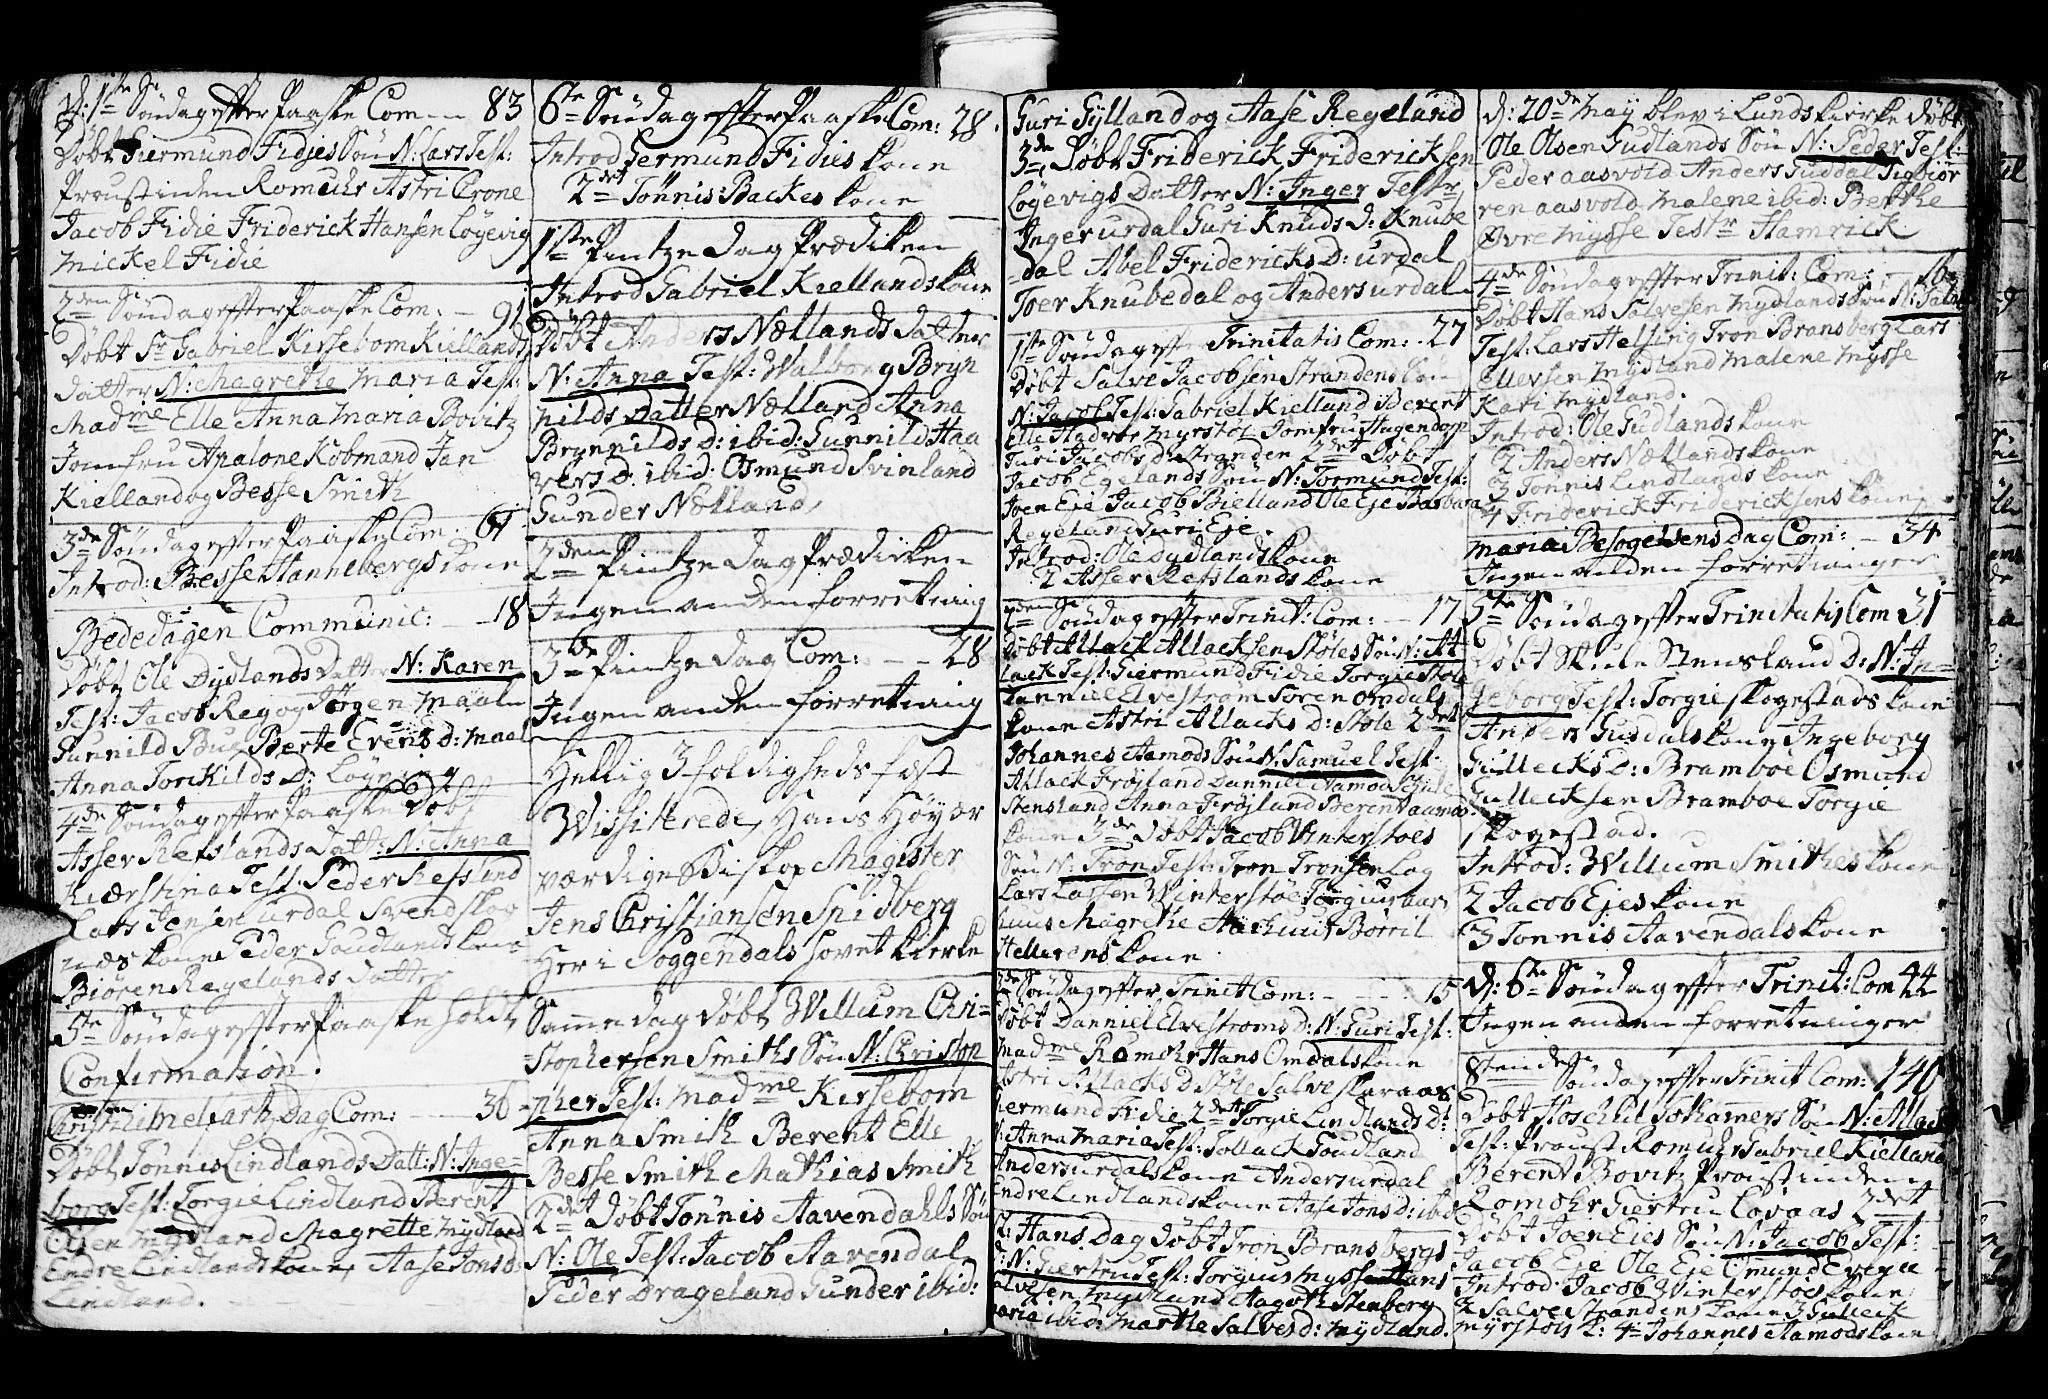 D: 1ste Søndag effter Paaske Com — 83
Døbt Giermund Fidjes Søn N: Lars Test:
Proustinden Romuhr Astri Crone
Jacob Fidie Friderick Hansen Løyevig
Mickel Fidie
2den Søndag effter Paaske Com: — 91
Døbt Sr Gabriel Kirsebom Kiellands
datter N: Magrethe Maria Test:
Madme Elle Anna Maria Bovitz
Jomfru Apalone Kobmand Jan
Kielland og Besse Smith
3de Søndag effter Paaske Com 61
Introd: Besse Hannebergs Kone
Bededagen Communic: — 18
Døbt Ole Dydlands Datter N: Karen
Test: Jacob Reg og Jørgen Maal
Gunnild Bug Berte Evens D: Maal
Anna Torkilds D: Løye
4de Søndag effter Paaske Døbt
Asser Refslands Datt: N: Anna
Kierstina Test: Peder Refsland
Lars Jensen Urdal Svend Skog
Kone Peder Goudland Kone
Biøren Regelands Datter
5te Søndag effter Paaske holdt
Confirmation.
Christi Himelfartz Dag Com: — 36
Døbt Tønnes Lindlands Datt: N: Inge-
borg Test: Torgie Lindland Berent
Olsen Mydland Magrette Mydland
Endre Lindlands Kone, Aase Jons D:
Lindland.
6te Søndag effter Paaske Com: 28.
Introd Germund Fidies Kone
2det Tønnis Backes Kone
1ste Pintze Dag Prædiken
Introd Gabriel Kiellands Kone
Døbt Anders Nællands Datter
N: Anna Test: Walborg Bryn
hilds Datter Nælland Anna
Brynnilds D: ibid: Gunnild Haa
vers D. ibid: Osmund Svinland
Gunder Nælland,
2den Pintze Dag Prædicken
Ingen anden forretning
3de Pintze Dag Com: — 28
Ingen anden forretning
Hellig 3foldigheds fæst
Wissiterede, Hans Høyær
værdige Biskop Magister
Jens Christiansen Spidberg
Her i Soggendals Hovet Kierke
Samme dag Døbt Willum Chri-
stophersen Smiths Søn N: Christop
pher Test: Madme Kirsebom
Anna Smith Berent Elle
Besse Smith Mathias Smith
2det Døbt Tønnis Aavendahls Søn
N: Ole Test: Jacob Aavendal
Peder Drageland Gunder ibid:
Guri Gylland og Aase Regeland
3de Døbt Friderick Fridericksen
Løyevigs Datter N: Inger Testr
Inger Urdal Guri Knuds D: Knube
dal Abel Fridericks D: Urdal
Toer Knubedal og Anders Urdal
1ste Søndag effter Trinitatis Com: 27
Døbt Salve Jacobsen Strandens Søn
N: Jacob Test: Gabriel Kielland Berent
Elle Myrstøl Jomfru Hugendorp
Guri Jacobs D: Stranden 2det Døbt
Jacob Egelands Søn N: Tormund Test:
Joen Eie Jacob Bielland Ole Eje Barbara
Regeland Guri Eje.
Introd: Ole Dydlands Kone
2 Asser Refslands Kone
2den Søndag effter Trinit: Com: — 17
Døbt Atlack Atlacksen Støles Søn N: At
lack Test: Giermund Fidie Torgie Støle
Danniel Elvestrøm Søren Omdals
Kone Astri Atlacks D: Støle 2det
Johannes Aamods Søn N: Samuel Test:
Atlack Frøyland Danniel Aamod Schule
Stensland Anna Frøyland Berent Aamods
Kone 3de Døbt Jacob Vinterstøes
Søn N: Tron Test: Tron Tronsen Log
Lars Larsen Winterstøe Torgius Aar
huus Magrethe Aarhuus Børril
Hellerens Kone
3de Søndag effter Trinit Com: — 15
Døbt Danniel Elvestrøms D: N: Guri Test:
Madme Romohr Hans Omdals Kone
Astri Atlacks D Støle Salve Skaraas
Germund Fidie 2det Torgie Lindlands D:
N: Anna Maria Test: Tollack Goudland
Anders Urdals Kone Anders Urdal
Endre Lindlands Kone Aase Jons D: ibid
St: Hans Dag Døbt Tron Bransbergs
D: N: Giertru Test: Torgius Mysse Hans
Salvesen Mydland Aagoth Stenberg
Maria ibid: Marthe Salves D: Mydland.
D: 20de Maij blev i Lunds Kierke Døbt
Ole Olsen Gudlands Søn N: Peder Test:
Peder Aasvold Anders Guddal Sigbiør
ren Aasvold Malene ibid: Berthe
Øvre Mysse Testr Hamrick
4de Søndag effter Trinit: Com: — 16
Døbt Hans Salvesen Mydlands Søn N: Salve
Test: Lars Helsing Tron Bransberg Lars
Ellevsen Mydland Malene Mysse
Kari Mydland.
Introd: Ole Gudlands Kone
2 Anders Nællands Kone
3 Tønnis Lindlands Kone
4 Friderick Fridericksens Kone
Maria Besøgelsens Dag Com: — 34
Ingen anden forretninger
5te Søndag effter Trinitatis Com 31
Døbt Skule Stensland D: N: In-
geborg Test: Torgie Skogestads Kone
Anders Gusdals Kone Ingeborg
Gullecks D: Bramboe Osmund
Gullecksen Bramboe Torgie
Skogestad.
Introd: Willum Smithes Kone
2 Jacob Ejes Kone
3 Tønnis Aavendals Kone
D: 6te Søndag effter Trinit: Com 44
Ingen anden forretninger
8tende Søndag effter Trinit Com: 140
Døbt Hoschil Tothamers Søn N: Atlack
Test: Proust Romuhr Gabriel Kielland
Berent Bovitz Proustinden
Romohr Giertru Lovaas 2det
Døbt Joen Eies Søn N: Jacob Test:
Jacob Eje Ole Eje Omund Evene
Introd: Jacob Winterstøes Kone
2 Salve Strandens Kone 3 Gulleik
Myrstøls K: 4de Johannes Aamods Kone